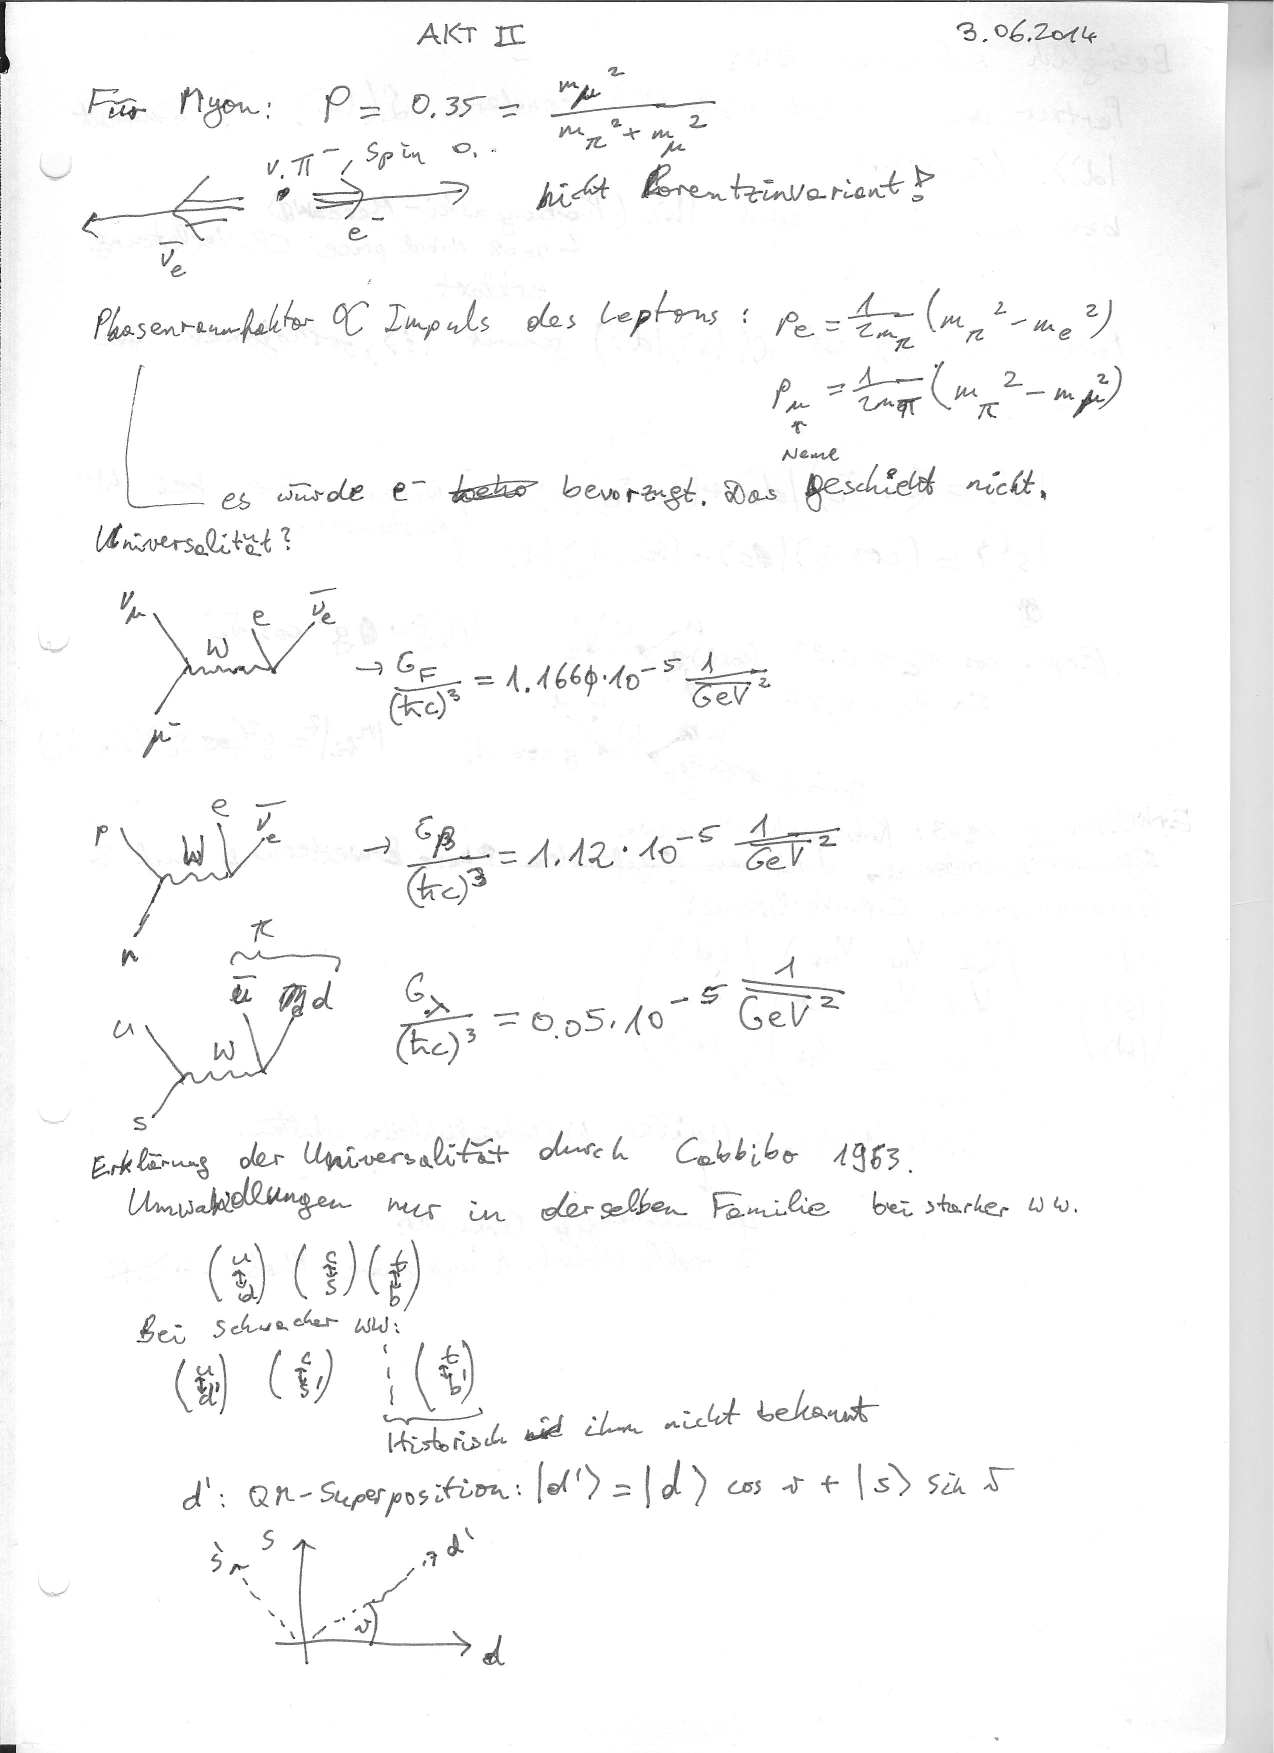 AKT II 3.06.2014
Für Myon: P = 0.35 = m_μ² / (m_π² + m_μ²)
v. π⁻, Spin 0.
ν̄_e e⁻ nicht Lorentzinvariant!
Phasenraumfaktor ∝ Impuls des Leptons: p_e = 1/(2m_π) (m_π² − m_e²)
p_μ = 1/(2m_π) (m_π² − m_μ²)
↑
Name
es würde e⁻ bevorzugt. Das geschieht nicht.
Universalität?
ν_μ e ν̄_e
W
μ⁻
→ G_F/(ħc)³ = 1.166 · 10⁻⁵ 1/GeV²
p e ν̄_e
W
n
→ G_β/(ħc)³ = 1.12 · 10⁻⁵ 1/GeV²
π
ū d
u
W
s
G_λ/(ħc)³ = 0.05 · 10⁻⁵ 1/GeV²
Erklärung der Universalität durch Cabbibo 1963.
Umwandlungen nur in derselben Familie bei starker WW.
(u ↕ d) (c ↕ s) (t ↕ b)
Bei schwacher WW:
(u ↕ d') (c ↕ s') (t ↕ b')
Historisch ihm nicht bekannt
d': QM-Superposition: |d'⟩ = |d⟩ cos ϑ + |s⟩ sin ϑ
s' s d'
ϑ
d